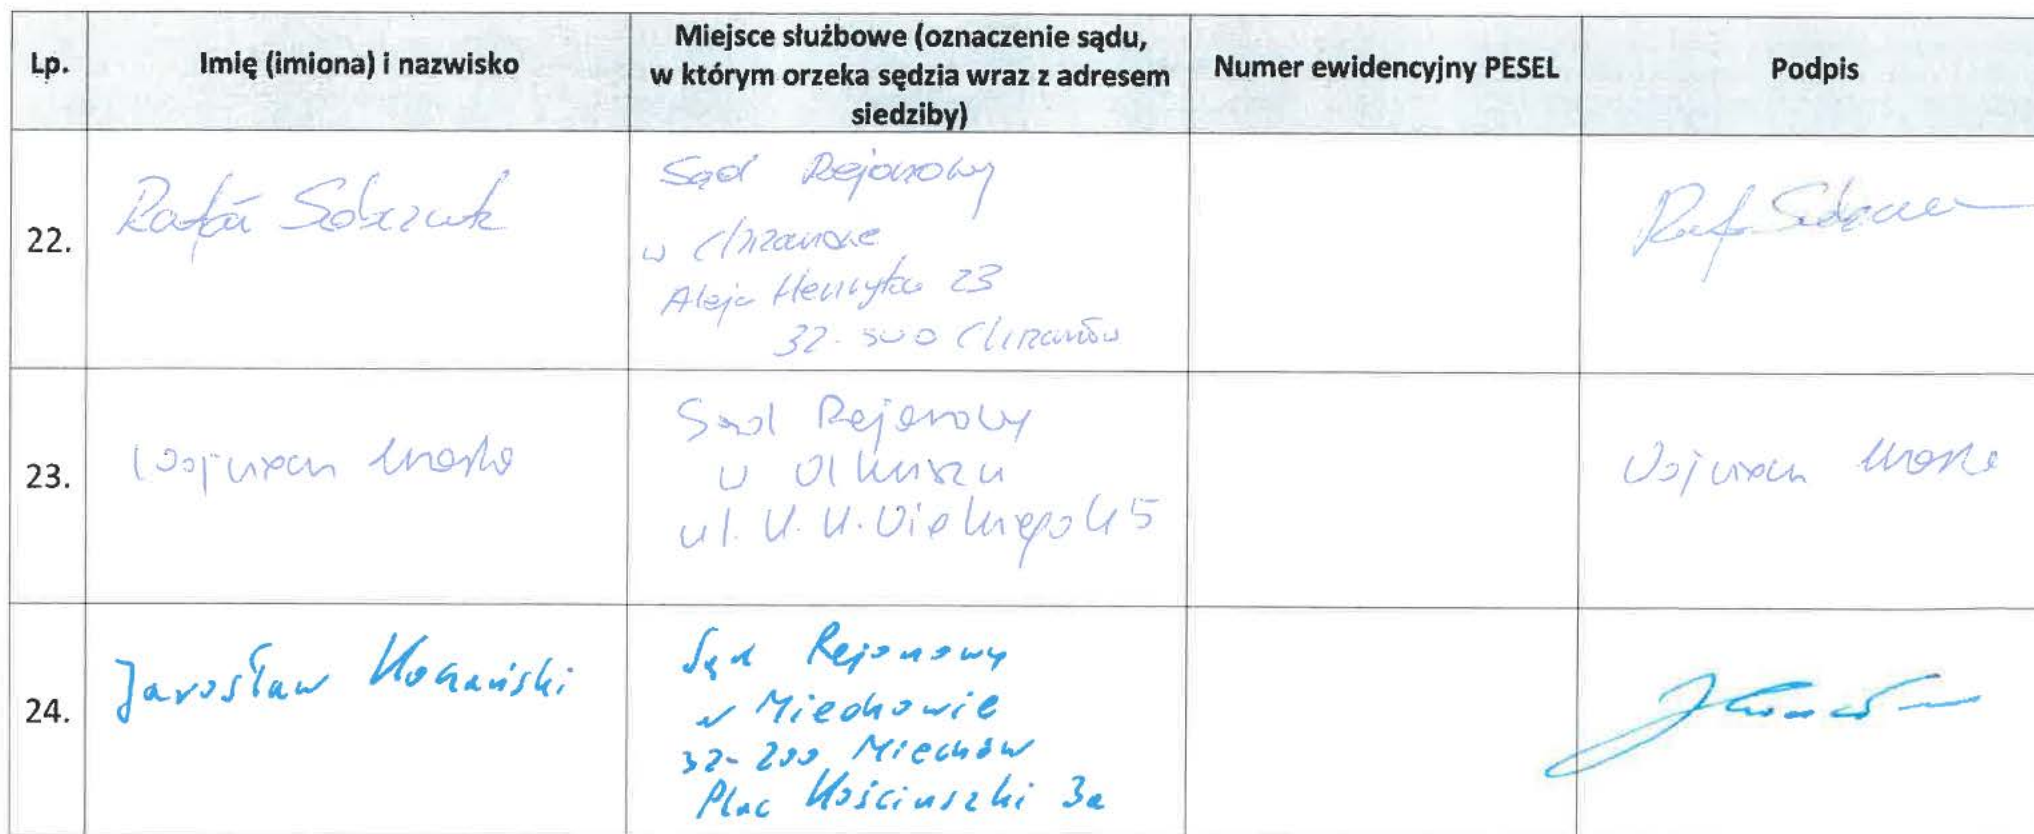 Lp. Imię (imiona) i nazwisko Miejsce służbowe (oznaczenie sądu, w którym orzeka sędzia wraz z adresem siedziby) Numer ewidencyjny PESEL Podpis
22. Rafał Sobczuk
Sąd Rejonowy
w Chrzanowie
Aleja Henryka 23
32-500 Chrzanów
23.
Sąd Rejonowy
w Olkuszu
ul. K. K. Wielkiego 45
24. Jarosław
Sąd Rejonowy
w Miechowie
32-200 Miechów
Plac Kościuszki 3a